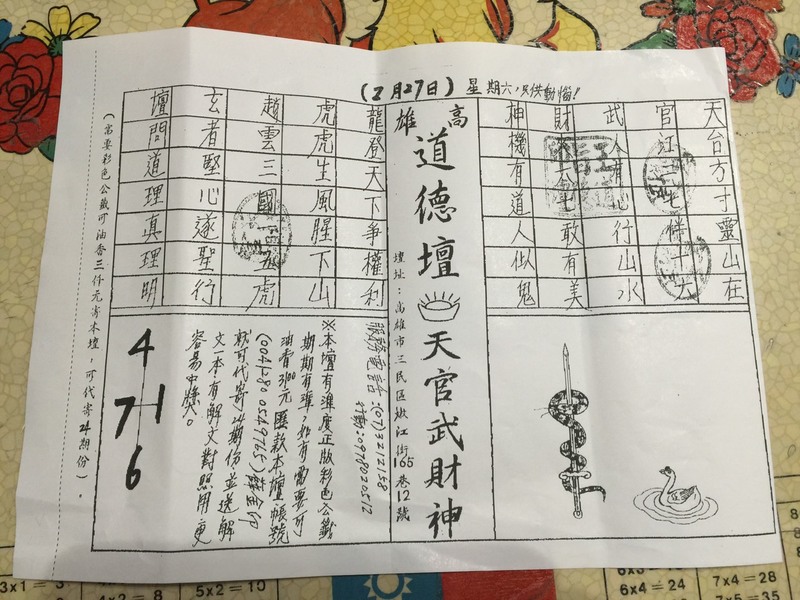 (2月27日)星期六,只供動惱!
天台方寸靈山在
官江二七伴十六
武人有心行山水
財六七敢有美
神機有道人似鬼
高雄
道德壇
天官武財神
壇址:高雄市三民區嫩江街165巷12號
服務電話:(07)3212158
行動:0978025512
龍登天下爭權利
虎虎生風腥下山
趙雲三國五虎
玄者堅心遂聖行
壇問道理真理明
※本壇有準度正版彩色公籤
期期有準,如有需要可
油香3100元 匯款本壇帳號
就可代寄24期份並送解
文一本,有解文對照用更
容易中獎。
4
7 1
6
(需要彩色公籤可油香三仟元寄本壇,可代寄24期份)。
3x1 = 3
4x2 = 8
5x2 = 10
6x4 = 24
7x4 = 28
7x5 = 35